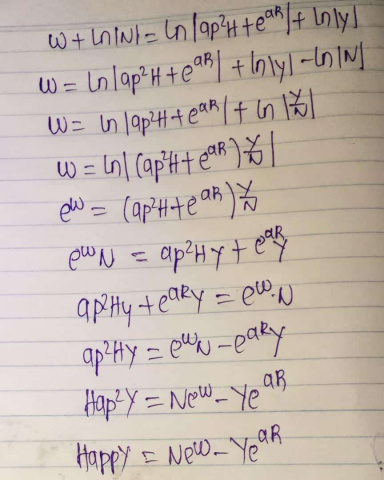 w + ln|N| = ln|ap²H + e^aR| + ln|y|
w = ln|ap²H + e^aR| + ln|y| - ln|N|
w = ln|ap²H + e^aR| + ln|Y/N|
w = ln|(ap²H + e^aR) Y/N|
e^w = (ap²H + e^aR) Y/N
e^w N = ap²Hy + e^aR y
ap²Hy + e^aR y = e^w · N
ap²HY = e^w N - e^aR y
Hap²Y = Ne^w - Ye^aR
HappY = Ne^w - Ye^aR